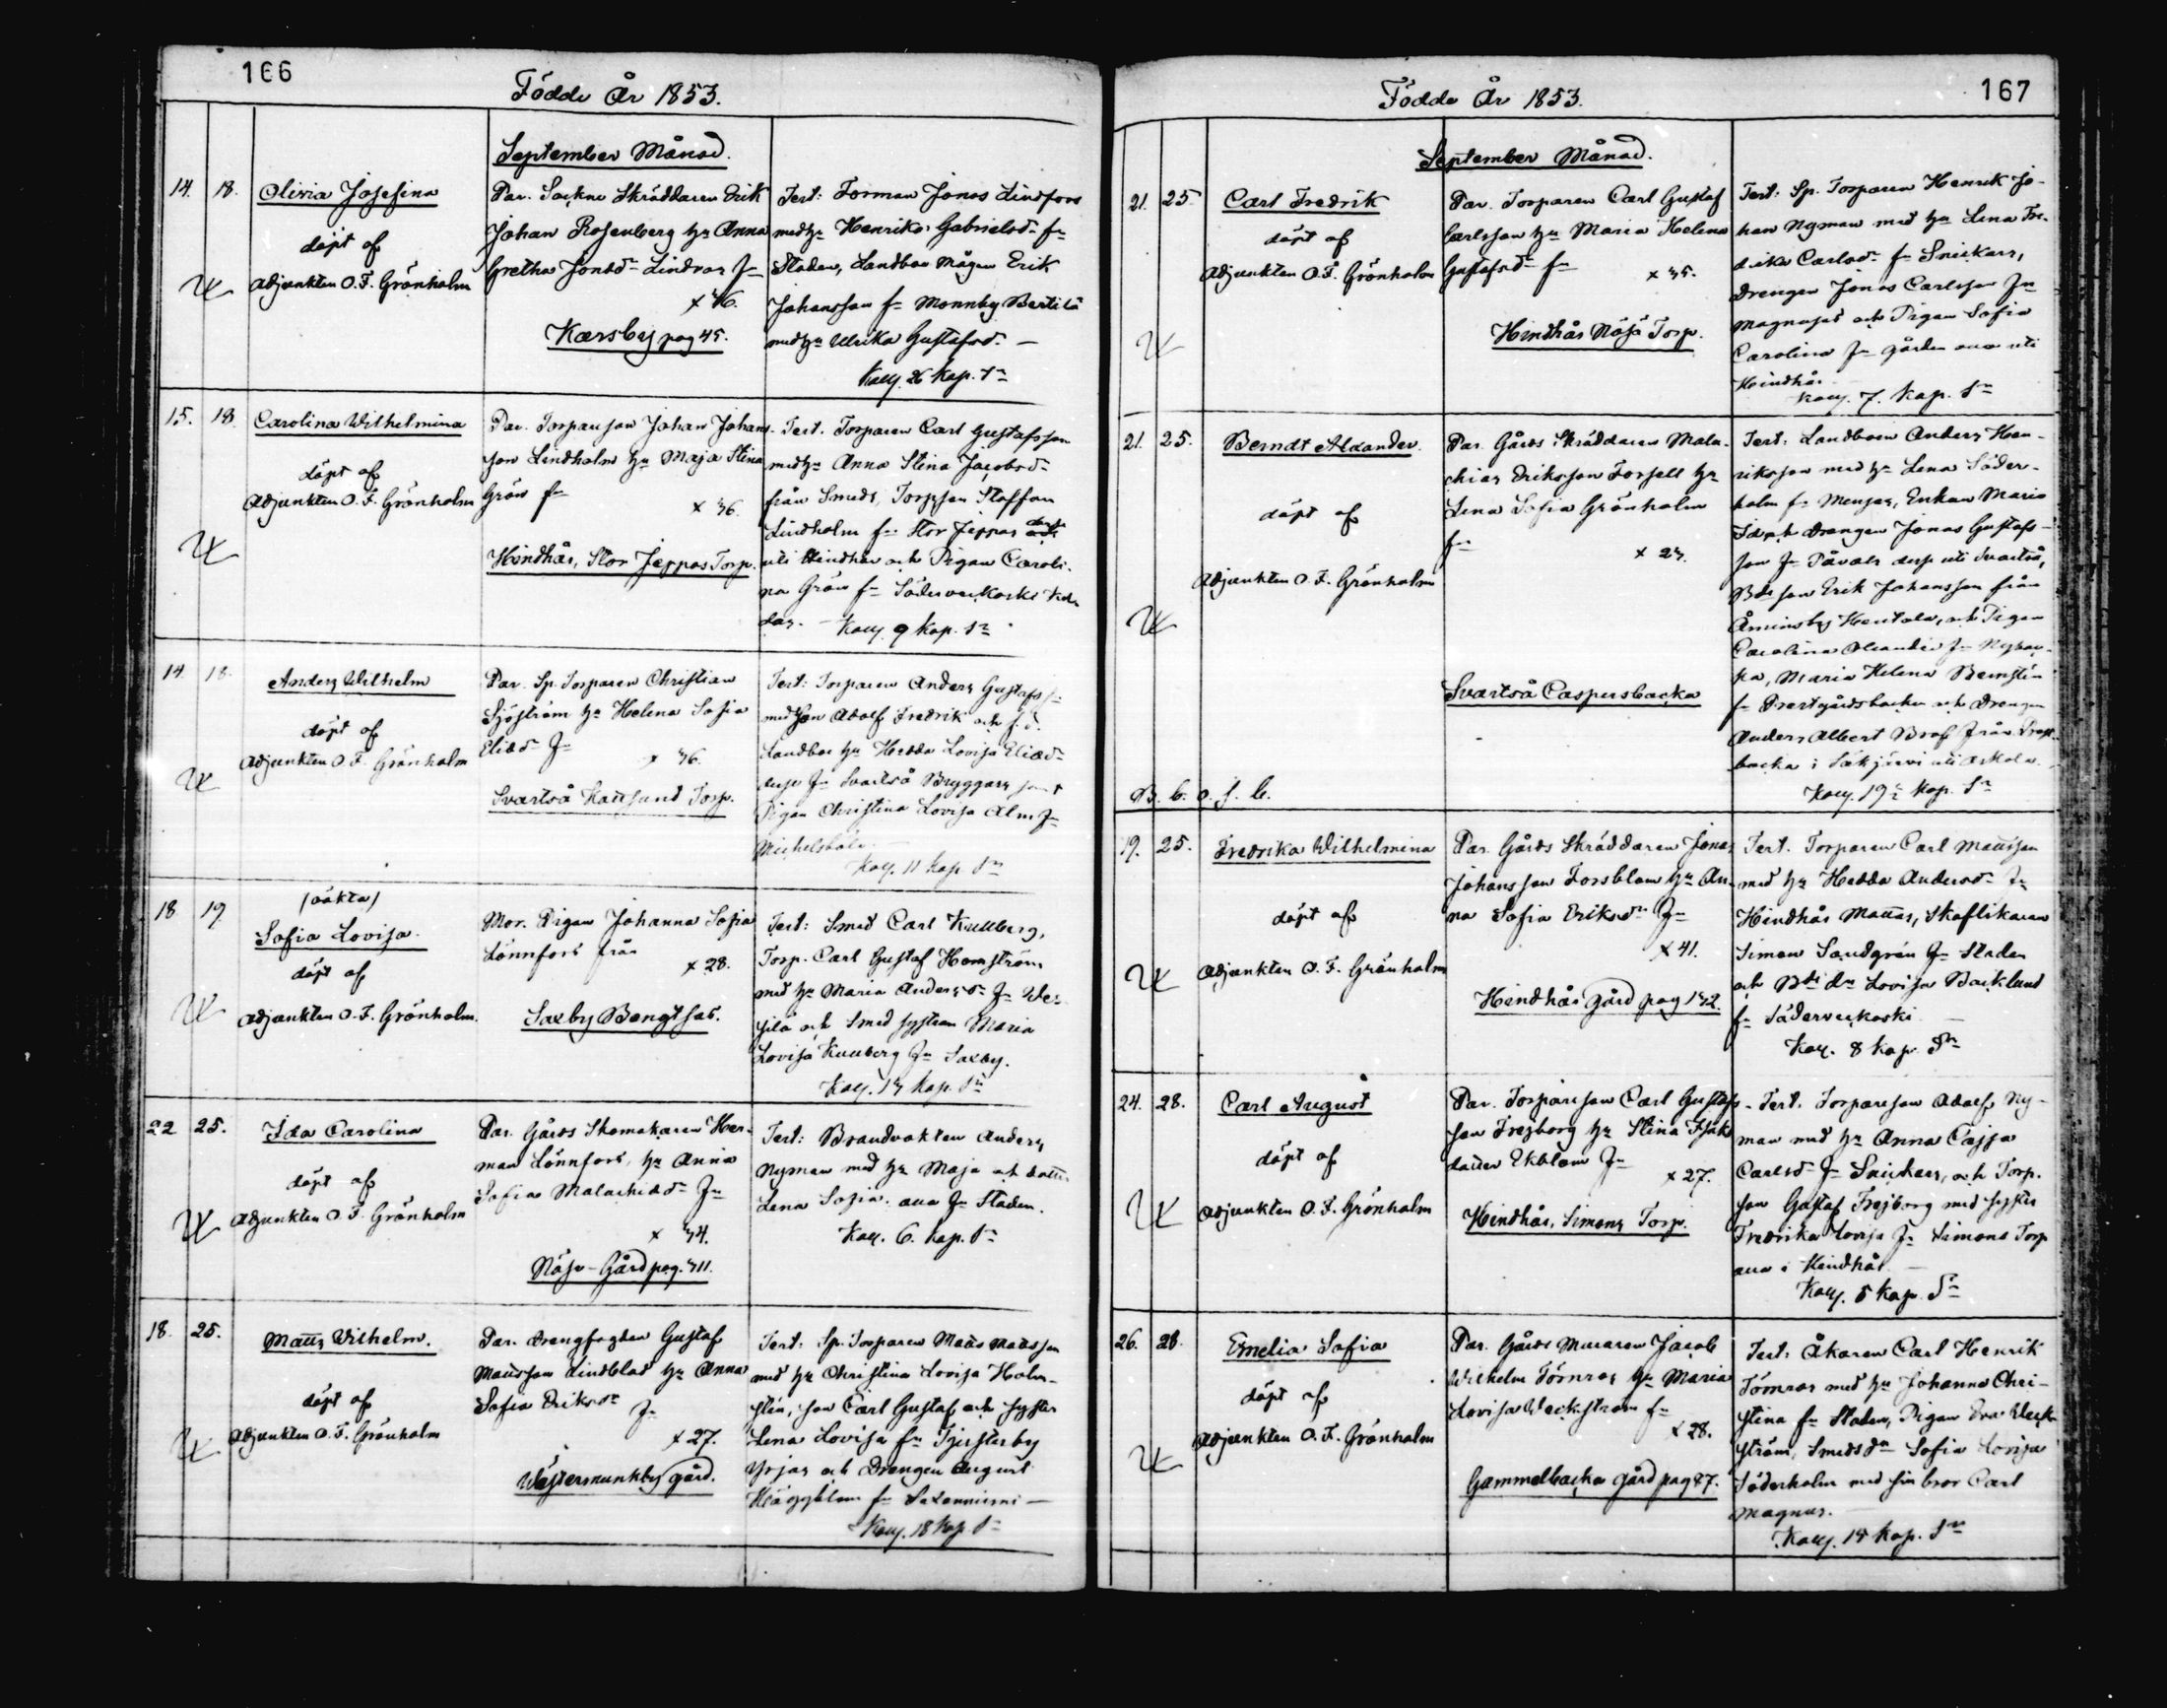 166
Födde År 1853.
September Månad.
14. 18. Olivia Josefina
döpt af
Adjunkten O. F. Grönholm
Par. Sockne Skräddaren Erik
Johan Rosenberg hu Anna
Gretha Jonsdr Lindroos fr
x 36.
Karsby pag 45.
Test: Forman Jonas Lindfors
med hu Henrika Gabrielsdr fr
Staden, Landbon Mågen Erik
Johansson fr Monnby Bertilä
med hu Ulrika Gustafsdr. —
Koey. 26 Kop. Sr
15. 18. Carolina Wilhelmina
döpt af
Adjunkten O. F. Grönholm
Par. Torparson Johan Johans-
son Lindholm hu Maja Stina
Grön fr
x 36.
Hindhår, Stor Jeppas Torp.
Test. Torparen Carl Gustafsson
med hu Anna Stina Jacobsdr
från Smeds, Torpson Staffan
Lindholm fr Stor Jeppas
uti Hindhår och Pigan Caroli-
na Grön fr Söderveckoski
Koey. 9 Kop. Sr
14 18. Anders Wilhelm
döpt af
Adjunkten O. F. Grönholm
Par. Sp. Torparen Christian
Sjöström hu Helena Sofia
Eliasdr fr
x 36.
Svartså Kattsund Torp.
Test: Torparen Anders Gustafss:
med son Adolf Fredrik och f. d.
Landbo hu Hedda Lovisa Eliasdr
fr Svartså Bryggars samt
Pigan Christina Lovisa Alm fr
Michelsböle.
Koey. 11 Kop. Sr
18 19. (oäkta)
Sofia Lovisa.
döpt af
Adjunkten O. F. Grönholm.
Mor. Pigan Johanna Sofia
Lönnfors från
x 28.
Saxby Bengtsas.
Test: Smed Carl Kullberg,
Torp. Carl Gustaf Hemström
med hu Maria Andersdr fr
och Smed system Maria
Lovisa Kullberg fr Saxby.
Kop. Sr
22 25. Ida Carolina
döpt af
Adjunkten O. F. Grönholm
Par. Gårds Skomakaren Her-
man Lönnfors, hu Anna
Sofia Malachiasdr fr
x 34.
Näse Gård pag. 311.
Test: Brandvakten Anders
Nyman med hu Maja och dottr
Lena Sofia. alla fr Staden.
Koey. 6. Kop. Sr
18. 25. Matts Wilhelm.
döpt af
Adjunkten O. F. Grönholm
Par. Drengfogden Gustaf
Mattsson Lindblad hu Anna
Sofia Eriksdr fr
x 27.
Westermunkby gård.
Test: Sp. Torparen Matts Mattsson
med hu Christina Lovisa Holm-
stén, son Carl Gustaf och syster
Lena Lovisa fr Tjusterby
Yrjas och Drengen August
Häggblom fr
Koey. 18 Kop. Sr
167
Födde År 1853.
September Månad.
21. 25. Carl Fredrik
döpt af
Adjunkten O. F. Grönholm
Par. Torparen Carl Gustaf
Carlsson hu Maria Helena
Gustafsdr fr
x 35.
Hindhår Näse Torp.
Test: Sp. Torparen Henrik Jo-
han Nyman med hu Lena Fre-
drika Carlsdr fr Snickars,
Drengen Jonas Carlsson fr
Magnusas och Pigan Sofia
Carolina fr gården alla uti
Hindhår.
Koey. 7. Kop. Sr
21. 25. Berndt Alexander.
döpt af
Adjunkten O. F. Grönholm
Par. Gårds Skräddaren Mala-
chias Eriksson Forsell hu
Lena Sofia Grönholm
fr
x 23.
Svartså Caspersbacka
Test: Landboen Anders Hen-
riksson med hu Lena Söder-
holm fr Mensas, Enkan Maria
Drengen Jonas Gustafs-
son fr Påvals uti Svartså,
Bdeson Erik Johansson från
Åminsby Hentala, och Pigan
Carolina fr
Maria Helena
fr Prestgårdsbacka och Drengen
Anders Albert Brof från
backa i uti Askola.
Koey. Kop. Sr
B. b. o. f. l.
19. 25. Fredrika Wilhelmina
döpt af
Adjunkten O. F. Grönholm
Par. Gårds Skräddaren Jonas
Johansson Forsblom hu An-
na Sofia Eriksdr fr
x 41.
Hindhår Gård pag 132.
Test. Torparen Carl Mattsson
med hu Hedda Andersdr fr
Hindhår Mattas,
Simon Sandgrén fr Staden
och Bde dr Lovisa Backlund
fr Söderveckoski
Koey. 8 Kop. Sr
24. 28. Carl August
döpt af
Adjunkten O. F. Grönholm
Par. Torparson Carl Gustafs-
son Frejborg hu Stina Isaks
datter Ekblom fr
x 27.
Hindhår, Simons Torp.
Test. Torparson Adolf Ny-
man med hu Anna Cajsa
Carlsdr fr Snickars, och Torp.
son Gustaf Frejborg med syster
Fredrika Lovisa fr Simons Torp
alla i Hindhår
Koey. 5 Kop. Sr
26. 28. Emelia Sofia
döpt af
Adjunkten O. F. Grönholm
Par. Gårds Muraren Jacob
Wilhelm Törnros hu Maria
Lovisa Weckström fr
x 28.
Gammelbacka gård pag 87.
Test: Åkaren Carl Henrik
Törnros med hu Johanna Chri-
stina fr Staden, Pigan Eva Weck-
ström, Smeds dr Sofia Lovisa
Söderholm med sin bror Carl
Magnus.
Koey. 14 Kop. Sr